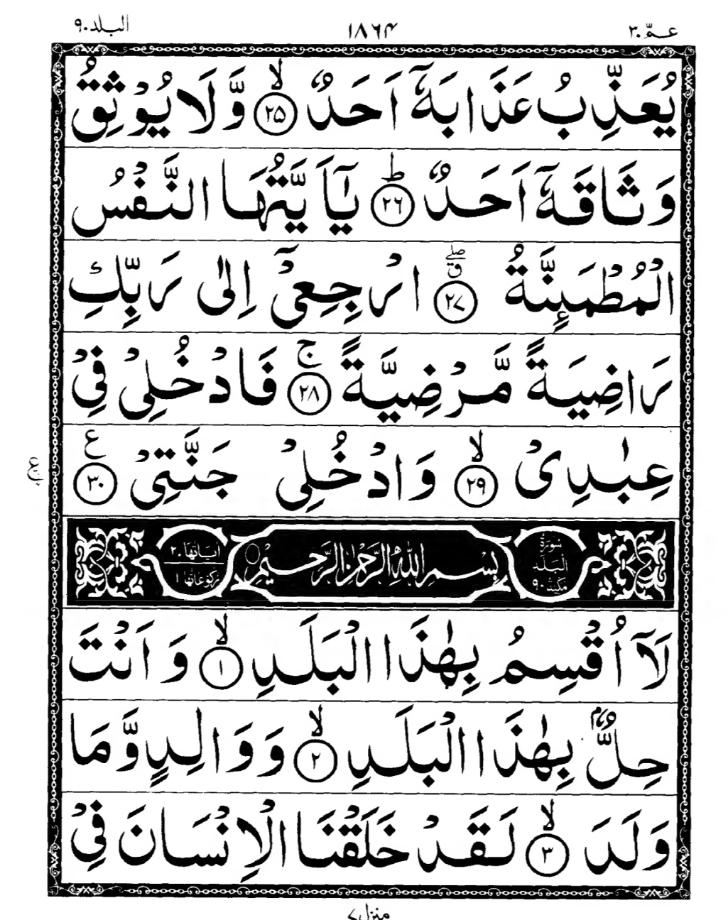 عمّ ٣٠ ١٨٦٤ البلد ٩٠
يُعَذِّبُ عَذَابَهٗۤ اَحَدٌ ۙ﴿۲۵﴾ وَّلَا یُوْثِقُ
وَثَاقَهٗۤ اَحَدٌ ؕ﴿۲۶﴾ یٰۤاَیَّتُهَا النَّفْسُ
الْمُطْمَىِٕنَّةُ ۗۖ﴿۲۷﴾ ارْجِعِیْۤ اِلٰی رَبِّكِ
رَاضِیَةً مَّرْضِیَّةً ۚ﴿۲۸﴾ فَادْخُلِیْ فِیْ
عِبٰدِیْ ۙ﴿۲۹﴾ وَادْخُلِیْ جَنَّتِیْ ﴿۳۰﴾ ع
سُورَةُ الْبَلَدِ مَكِّيَّةٌ ٩٠ بِسْمِ اللهِ الرَّحْمٰنِ الرَّحِيْمِ اٰيَاتُهَا ٢٠ رُكُوْعَاتُهَا ١
لَاۤ اُقْسِمُ بِهٰذَا الْبَلَدِ ۙ﴿۱﴾ وَاَنْتَ
حِلٌّۢ بِهٰذَا الْبَلَدِ ۙ﴿۲﴾ وَوَالِدٍ وَّمَا
وَلَدَ ۙ﴿۳﴾ لَقَدْ خَلَقْنَا الْاِنْسَانَ فِیْ
منزل ٧